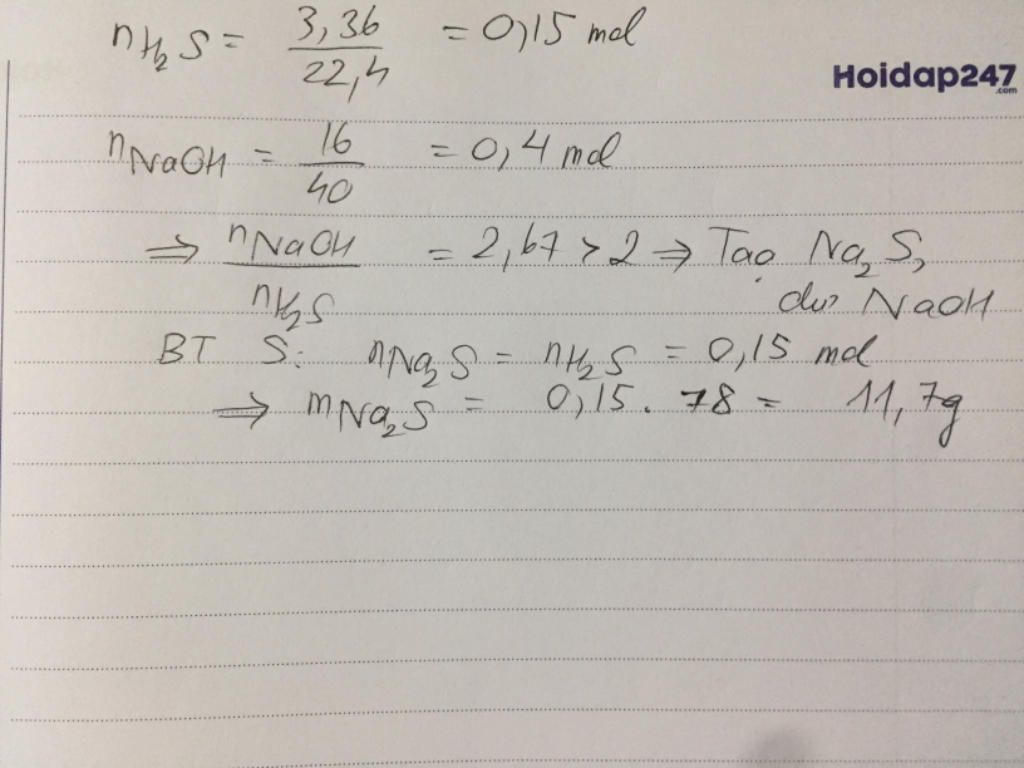 nH₂S = 3,36/22,4 = 0,15 mol
Hoidap247.com
nNaOH = 16/40 = 0,4 mol
⇒ nNaOH/nH₂S = 2,67 > 2 ⇒ Tạo Na₂S,
dư NaOH
BT S: nNa₂S = nH₂S = 0,15 mol
⇒ mNa₂S = 0,15. 78 = 11,7g